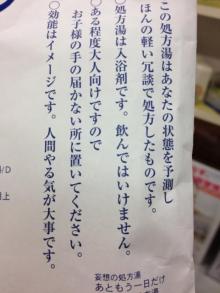 この処方湯はあなたの状態を予測し
ほんの軽い冗談で処方したものです。
○処方湯は入浴剤です。飲んではいけません。
○ある程度大人向けですので
お子様の手の届かない所に置いてください。
○効能はイメージです。人間やる気が大事です。
妄想の処方湯
あともう一日だけ